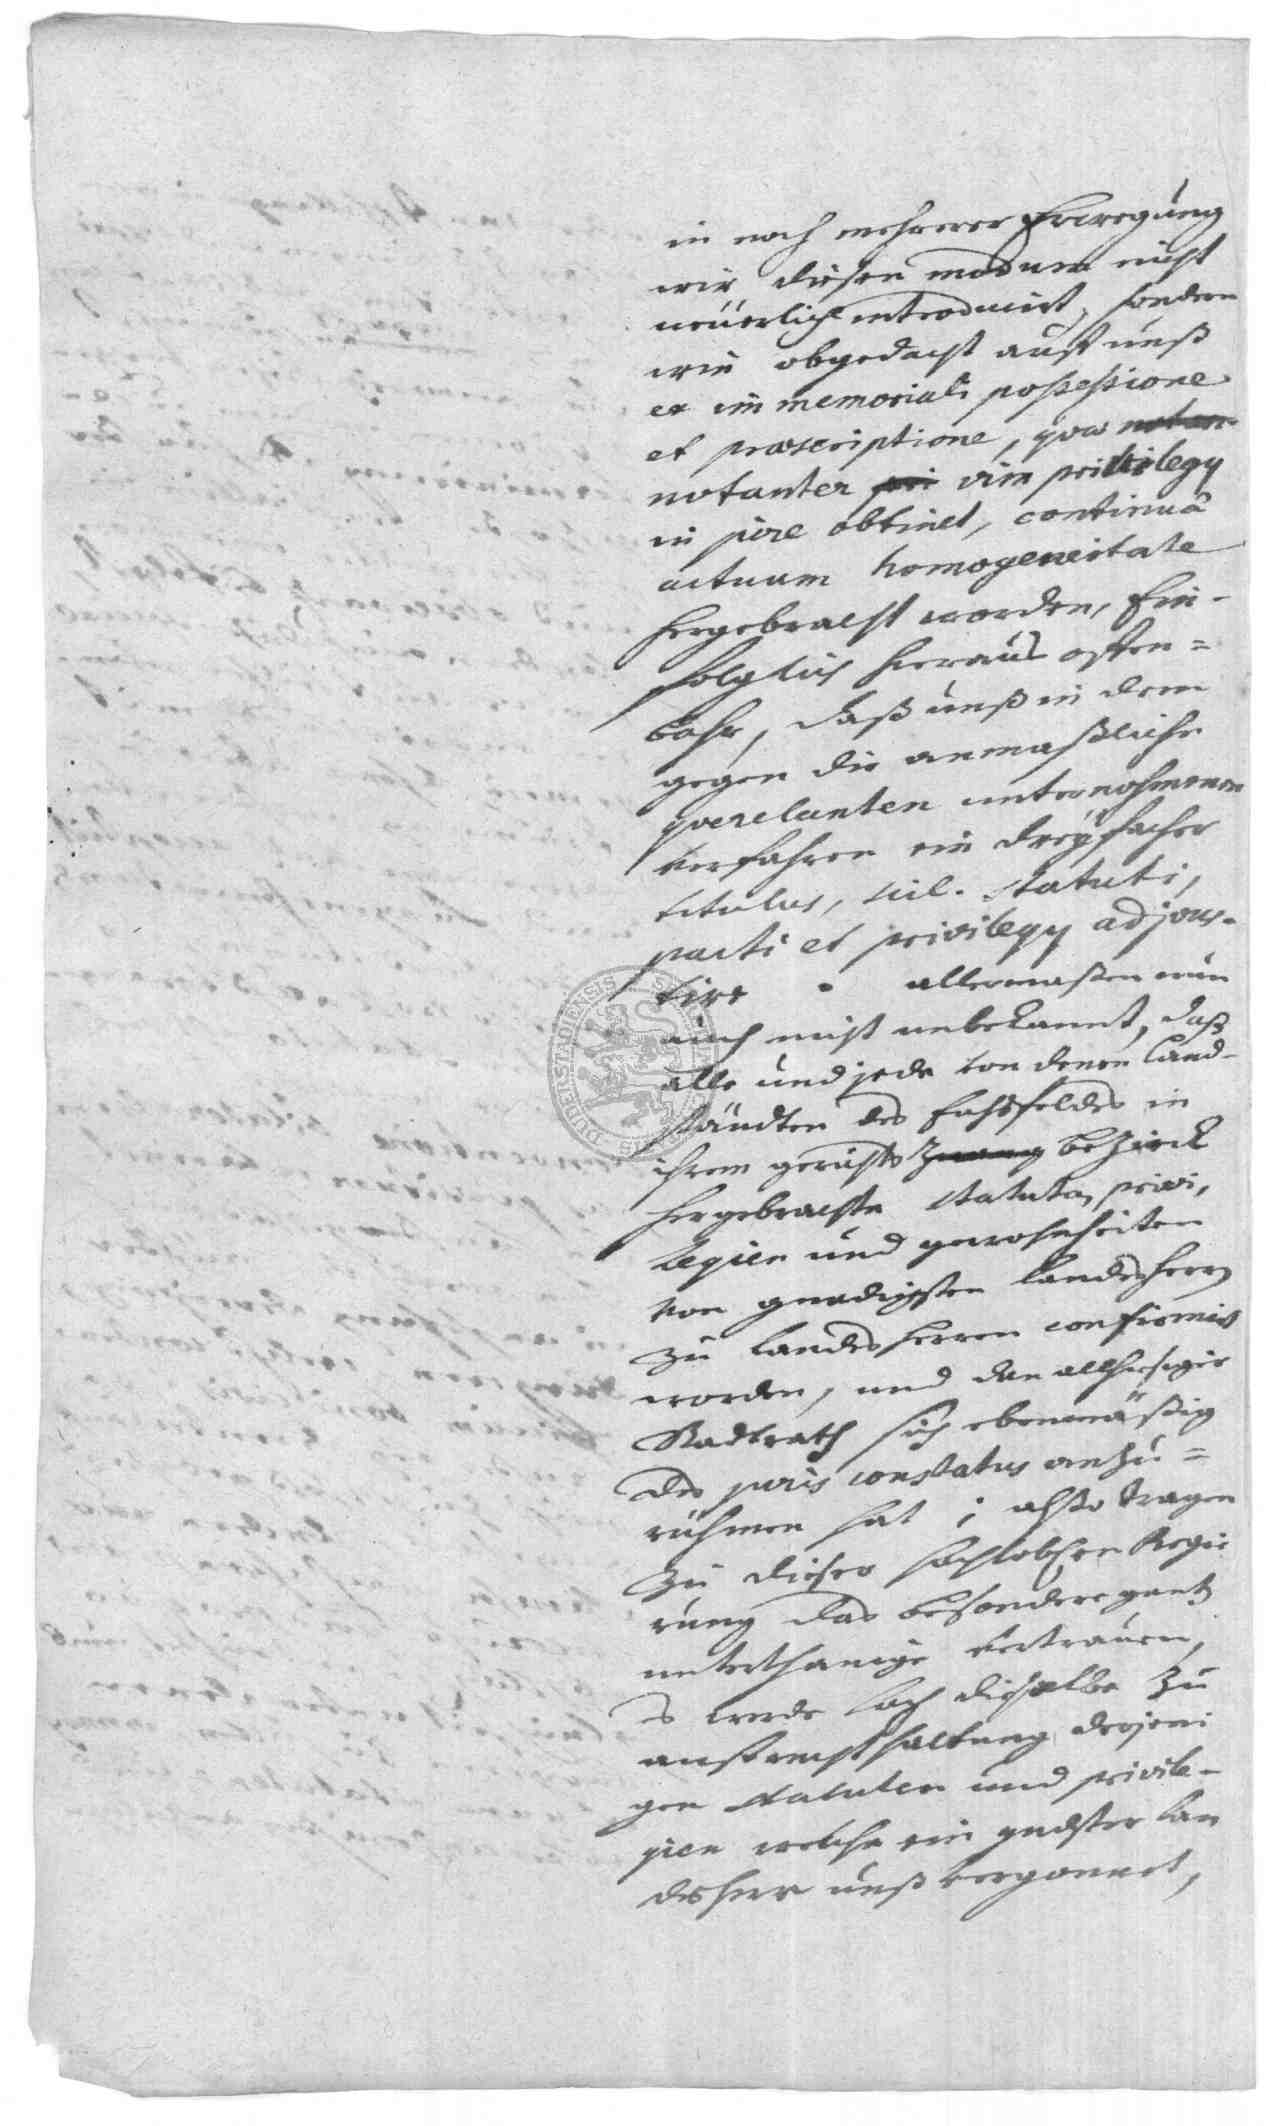 in noch mehrerer Erwegung
wir diesen modum nicht
neüerlich introducirt, sondern
wie obgedacht auff unß
ex immemoriali possessione
et præscriptione, quæ
notanter vim privilegy
in jure obtinet, continuâ
actuum homogeneitate
hergebracht worden, Ein-
folglich hieraus offen=
bahr, daß unß in dem
gegen die anmaßliche
querelanten unternohmenen
verfahren ein dreyfacher
titulus, scil. statuti,
pacti et privilegy adjous-
tire allermaßen nun
auch nicht unbekannt, daß
alle und jede von denen Land-
ständten des Eichsfeldes in
ihrem gerichts bezirck
hergebrachte statuta, privi,
legien und gewohnheiten
von gnädigsten Landesherrn
zu Landesherren confirmirt
worden, und der allhiesige
Stadtrath sich ebenmäßig
des juris constatus anzu=
rühmen hat ; alßo tragen
zu dieser hochlobl. Regie
rung das besondere gantz
unterthanige vertrauen,
es werde hoch dieselbe zu
auffrechthaltung derjeni
gen statuten und privile-
gien welche ein gndster Lan
desherr unß vergönnet,
SIGILLUM DUDERSTADIENSIS